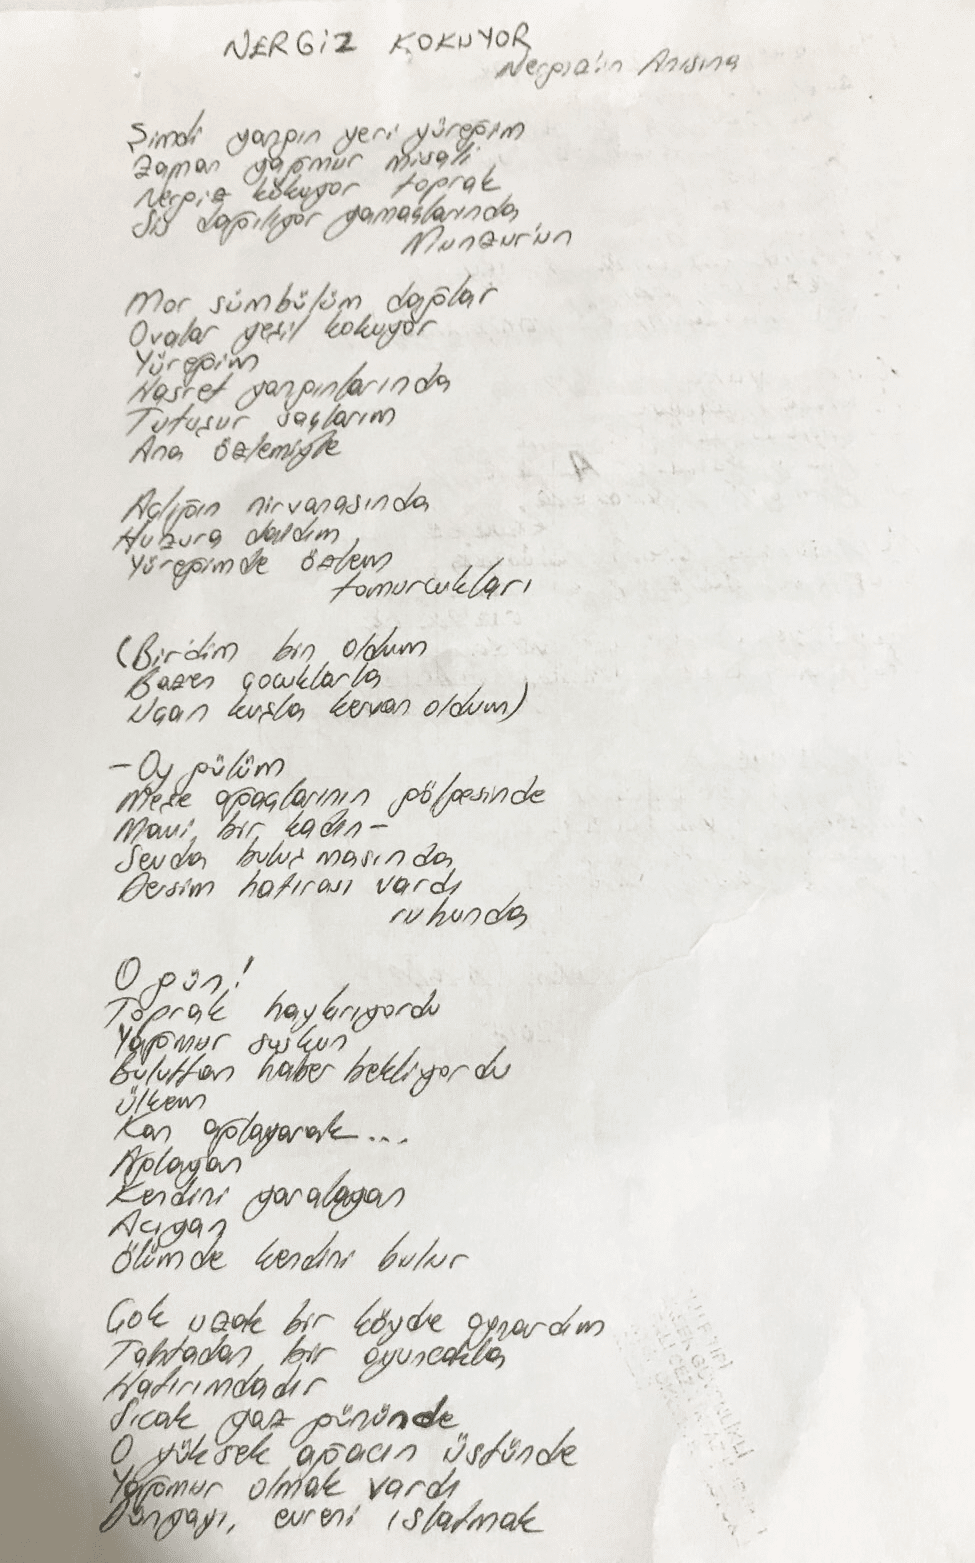 NERGİZ KOKUYOR
Nergiz'in Anısına
Şimdi yangın yeri yüreğim
Zaman yağmur misali
Nergiz kokuyor toprak
Sis dağılıyor yamaçlarında
Munzur'un
Mor sümbülüm dağlar
Ovalar yeşil kokuyor
Yüreğim
Hasret yangınlarında
Tutuşur saçlarım
Ana özlemiyle
Açlığın nirvanasında
Huzura daldım
Yüreğimde özlem
tomurcukları
(Bir'dim bin oldum
Bazen çocuklarla
Uçan kuşla kervan oldum)
-Oy gülüm
Meşe ağaçlarının gölgesinde
Mavi bir kadın-
Sevda buluşmasında
Dersim hatırası vardı
ruhunda
O gün!
Toprak haykırıyordu
Yağmur suskun
Buluttan haber bekliyordu
Ülkem
Kan ağlayarak...
Ağlayan
Kendini yaralayan
Acıyan
Ölümde kendini bulur
Çok uzak bir köyde oynardım
Tahtadan bir oyuncakla
Hatırımdadır
Sıcak yaz gününde
O yüksek ağacın üstünde
Yağmur olmak vardı
Dünyayı, evreni ıslatmak